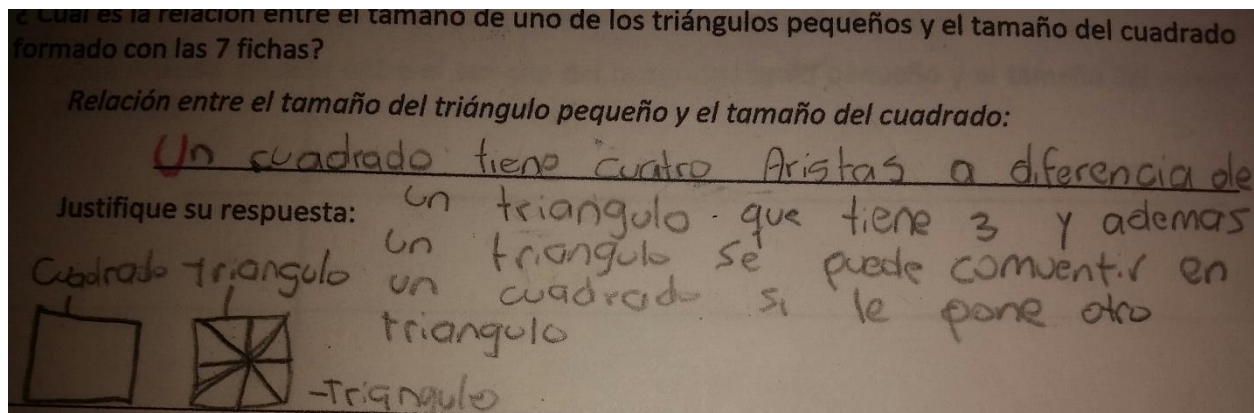 ¿ Cuál es la relación entre el tamaño de uno de los triángulos pequeños y el tamaño del cuadrado
formado con las 7 fichas?
Relación entre el tamaño del triángulo pequeño y el tamaño del cuadrado:
Un cuadrado tiene cuatro Aristas a diferencia de
Justifique su respuesta:
un triangulo que tiene 3 y ademas
un triangulo se puede comventir en
un cuadrado si le pone otro
triangulo
Cuadrado triangulo
-Triangulo